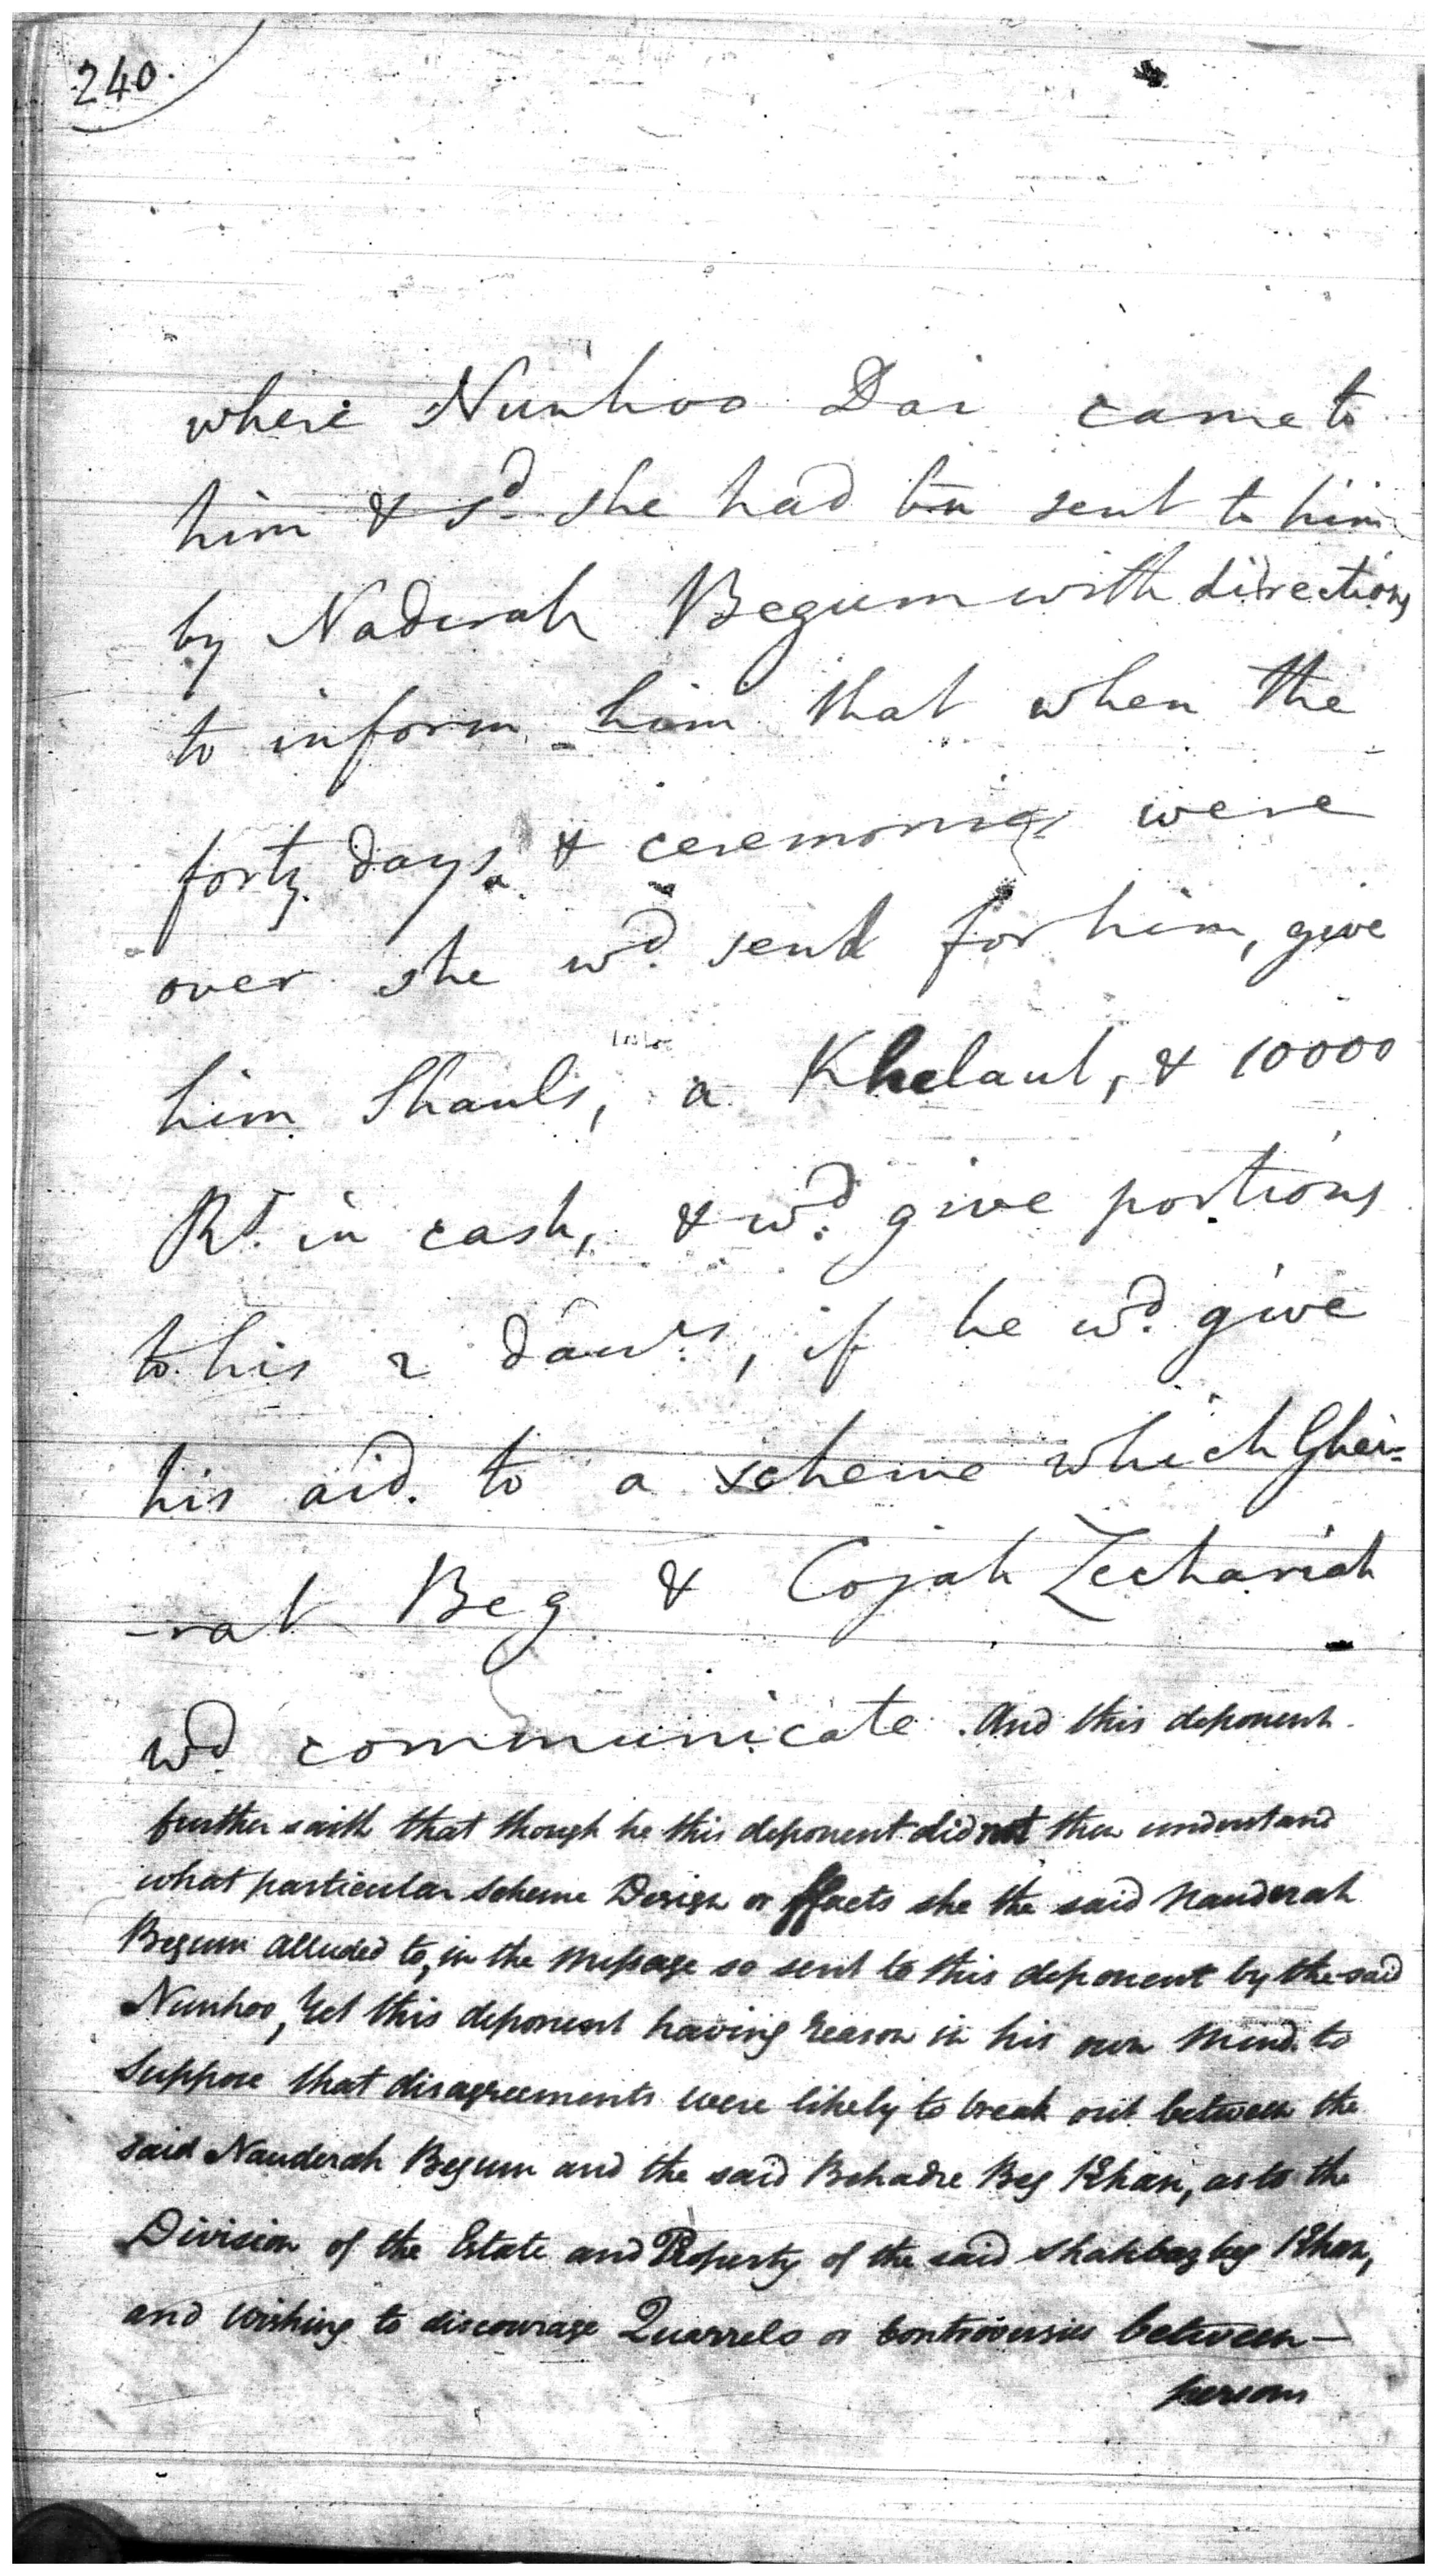 240.
where Nunhoo Dai came to
him & sd she had bn sent to him
by Naderah Begum with directions
to inform him that when the
forty days & ceremonies were
over she wd. send for him, give
him Shauls, a Khelaut, & 10000
Rs. in cash, & wd. give portions
to his 2 daurs, if he wd. give
his aid. to a scheme which Ghei-
-rat Beg & Cojah Zechariah
wd. communicate. And this deponent
further saith that though he this deponent did not then understand
what particular scheme Design or ffacts she the said Nauderah
Begum alluded to, in the Message so sent to this deponent by the said
Nunhoo, Yet this deponent having reason in his own Mind to
Suppose that disagreements were likely to break out between the
said Nauderah Begum and the said Behadre Beg Khan, as to the
Division of the Estate and Property of the said Shahbaz beg Khan,
and wishing to discourage Quarrels or Controversies between-
persons